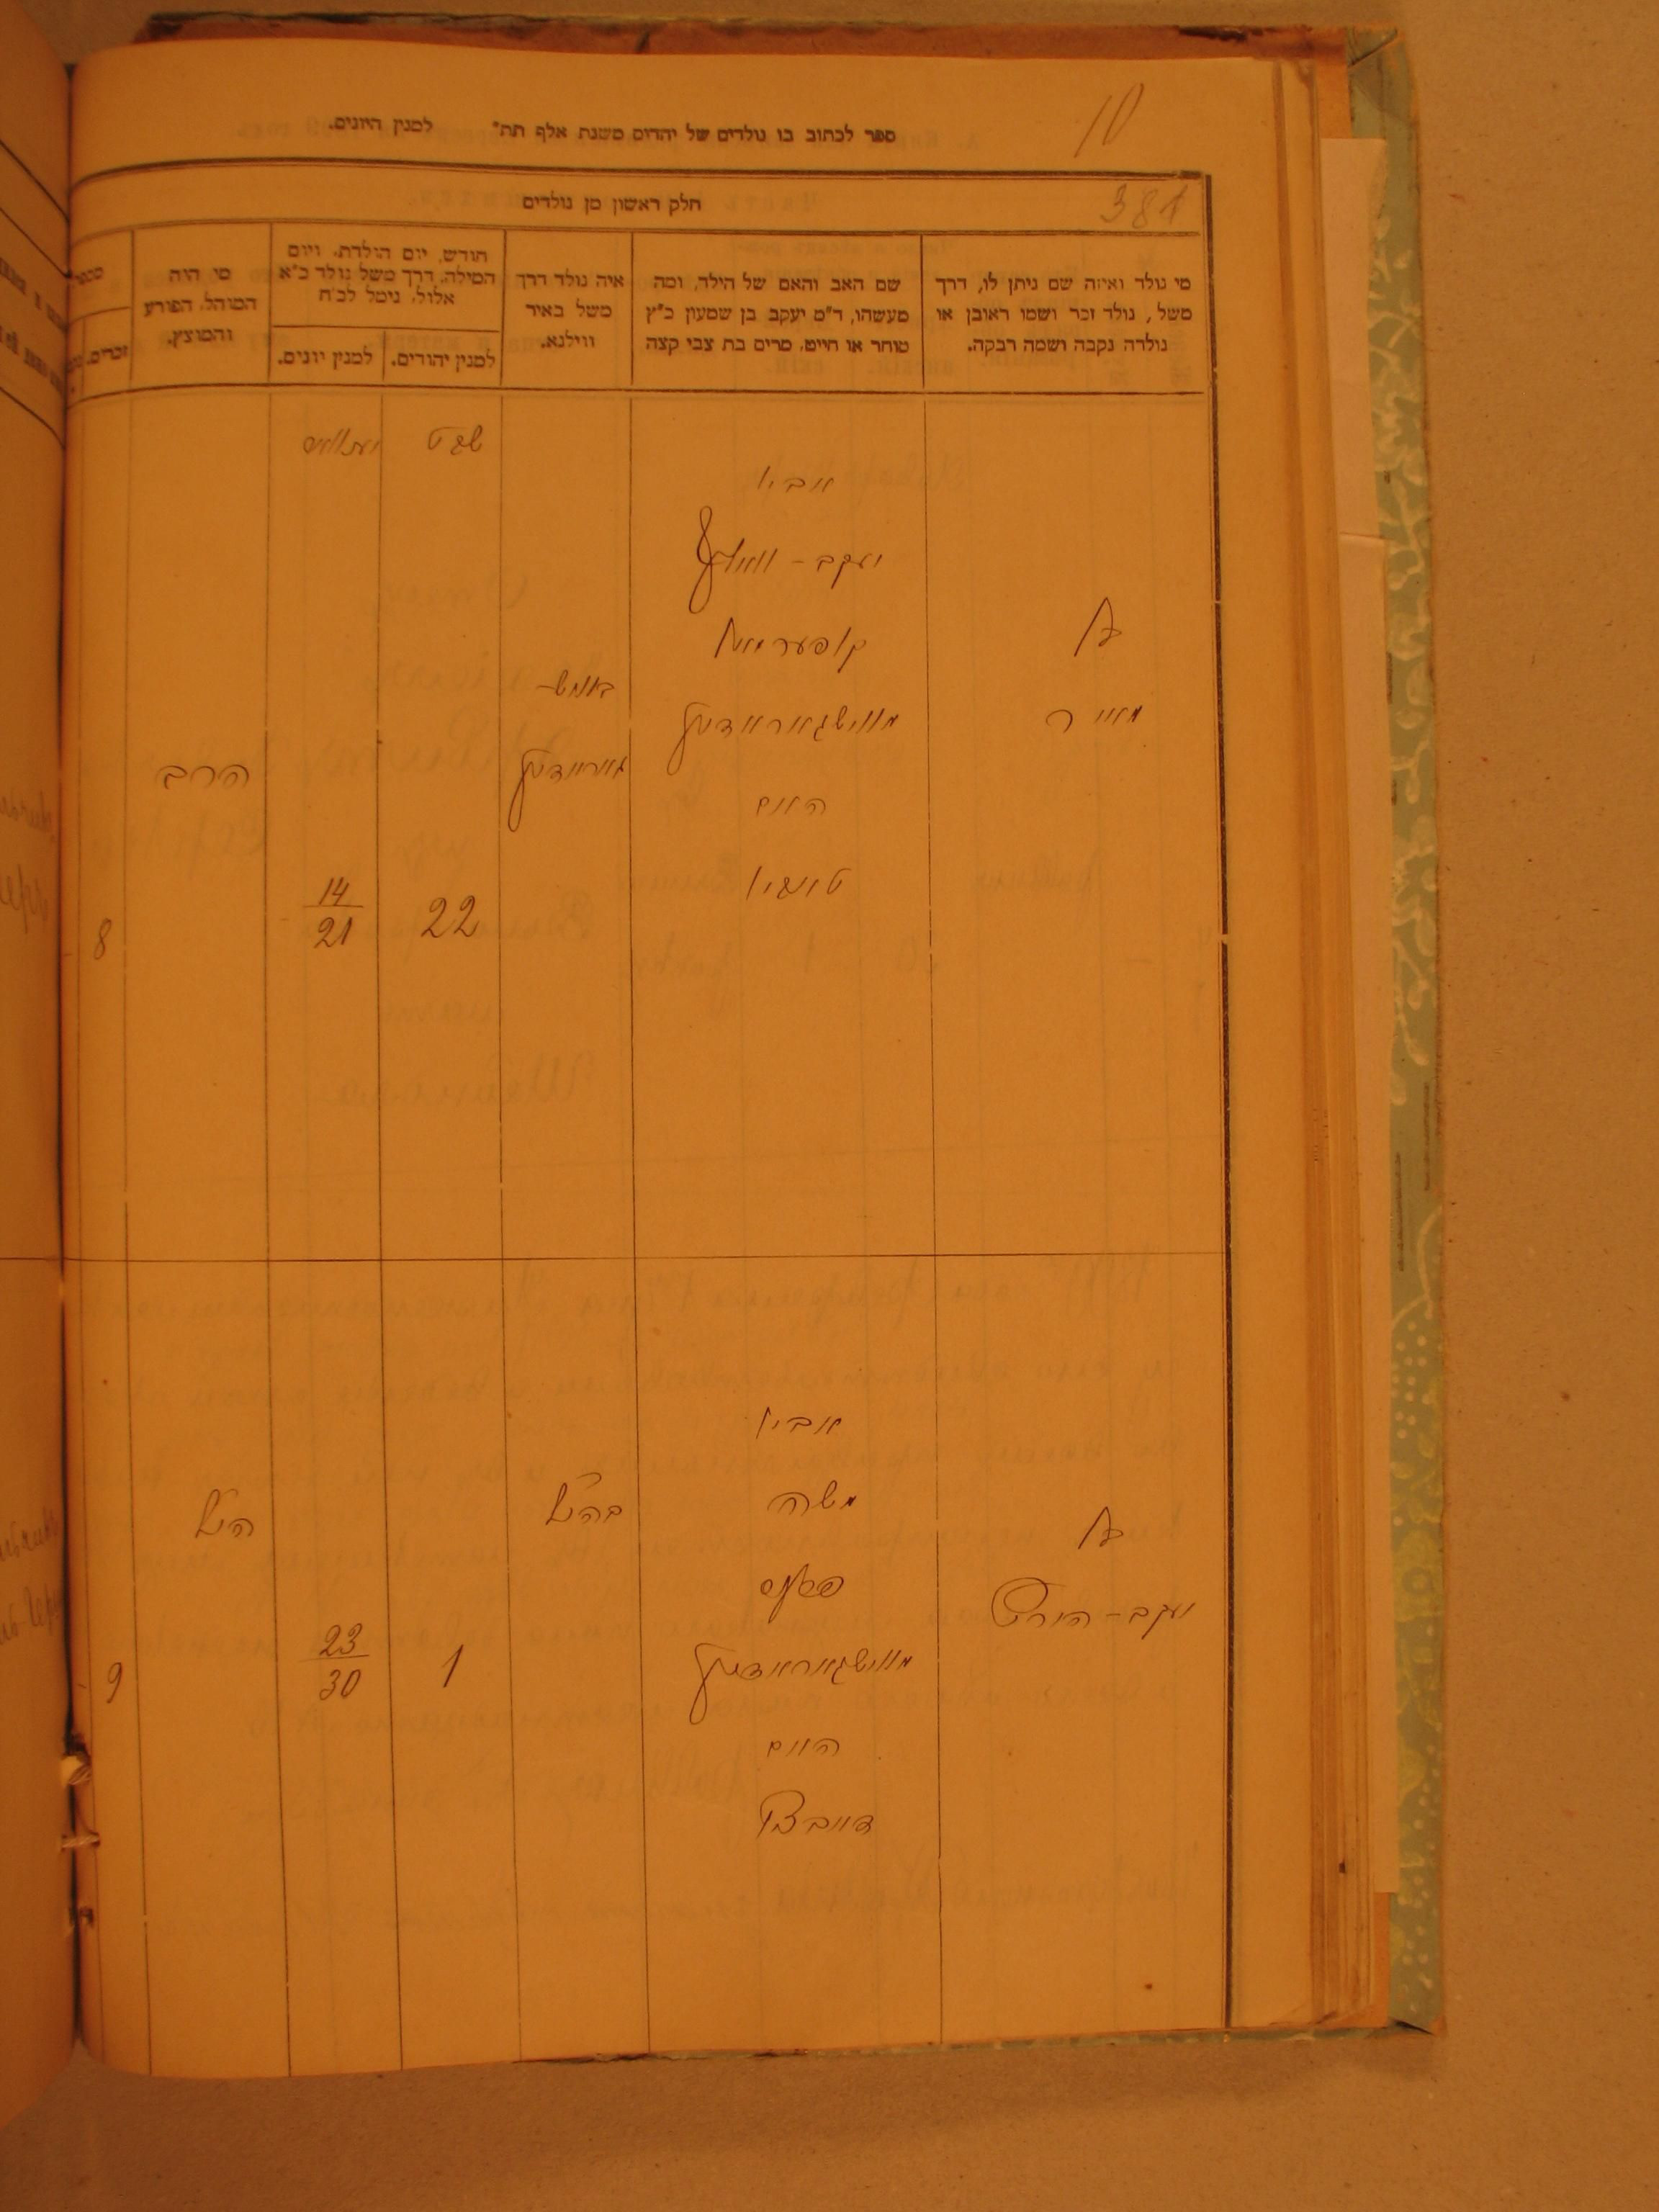 10
ספר לכתוב בו נולדים של יהדים משנת אלף תת״ למנין היונים.
381
חלק ראשון מן נולדים
מי נולד ואיזה שם ניתן לו, דרך
משל, נולד זכר ושמו ראובן או
נולדה נקבה ושמה רבקה.
שם האב והאם של הילד, ומה
מעשהו, ד״מ יעקב בן שמעון כ״ץ
סוחר או חייט, מרים בת צבי קצה
איה נולד דרך
משל באיר
ווילנא.
חודש, יום הולדת, ויום
המילה, דרך משל נולד כ״א
אלול, נימל לכ״ח
למנין יהודים.
למנין יונים.
מי היה
המוהל, הפורע
והמוצץ.
מספר
זכרים.
שבט
בן
מאיר
אביו
יעקב-וואלף
קופערמאן
מווישגאראדיק
האם
באוש-
גאראדיק
22
14
21
הרב
8
בן
יעקב-הירש
אביו
משה
מווישגאראדיק
האם
בהנ״ל
1
23
30
הנ״ל
9